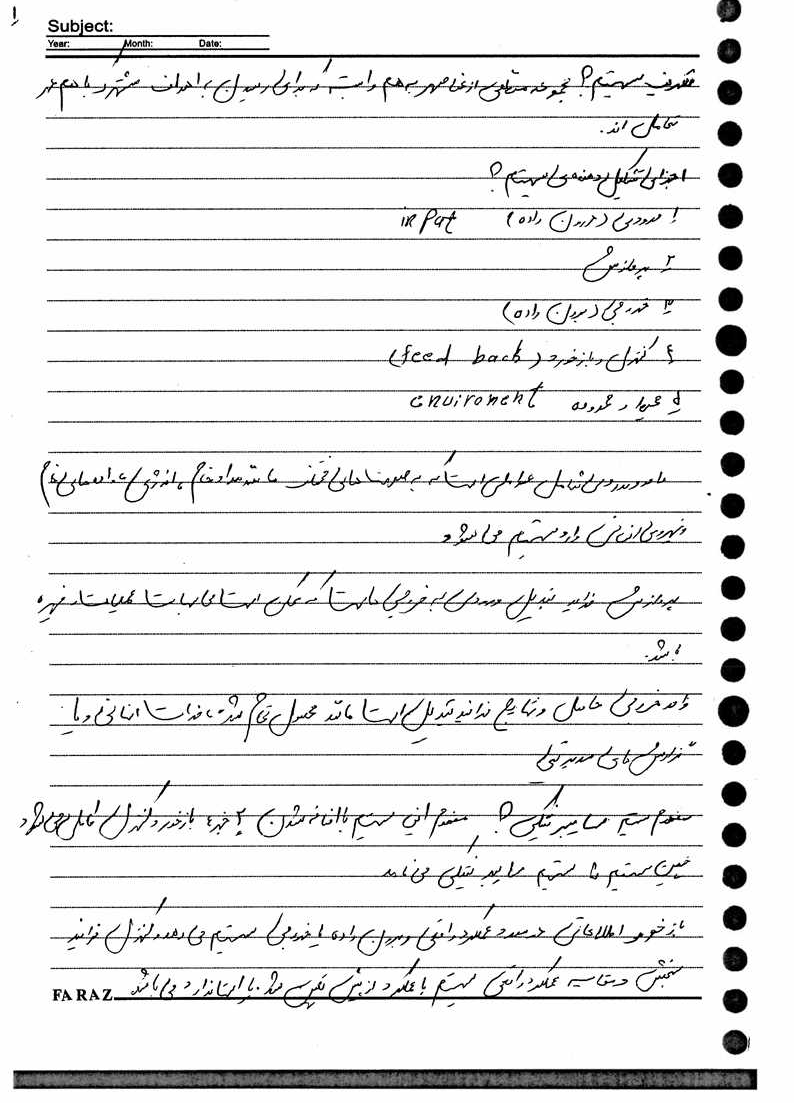 1
Subject:
Year: Month: Date:
تعریف سیستم؟ مجموعه متقابلی از عناصر به هم وابسته که برای رسیدن به اهداف مشترک با هم در
تعامل اند.
اجزای تشکیل دهنده ی سیستم؟
۱ ورودی (درون داده) in Put
۲ پردازش
۳ خروجی (برون داده)
۴ کنترل و بازخورد (feed back)
۵ محیط و محدوده enviroment
واحد ورودی شامل عواملی است که به صورت های مختلف مانند مواد خام، انرژی، داده های خام
و نیروی انسانی وارد سیستم می شود
پردازش فرایند تبدیل ورودی به خروجی هاست که ممکن است محاسبات عملیات و غیره
باشد.
واحد خروجی حاصل و نتایج فرایند تبدیل است مانند محصول تمام شده، خدمات انسانی و یا
گزارش های مدیریتی
مفهوم سیستم سایبرنتیکی؟ مفهوم این سیستم با اضافه شدن ۲ جزء بازخورد و کنترل کامل می شود
چنین سیستم را سیستم سایبرنتیکی می نامند
بازخورد اطلاعاتی در مورد عملکرد واقعی و برون داده یا خروجی سیستم می دهد و کنترل فرایند
سنجش و مقایسه عملکرد واقعی سیستم با عملکرد از پیش تعیین شده یا استاندارد می باشد
FARAZ